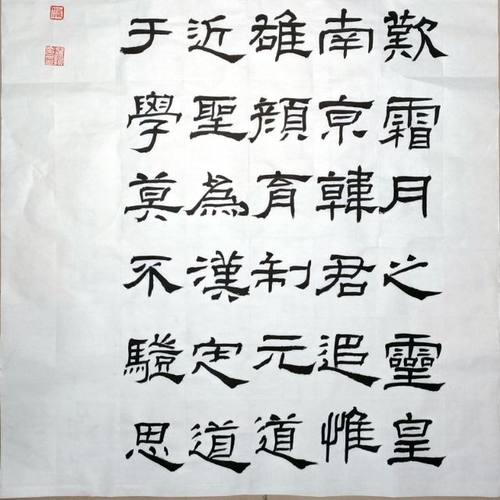 歎霜月之靈皇
南京韓君追惟
雄顏育制元道
近聖為漢定道
于學莫不思